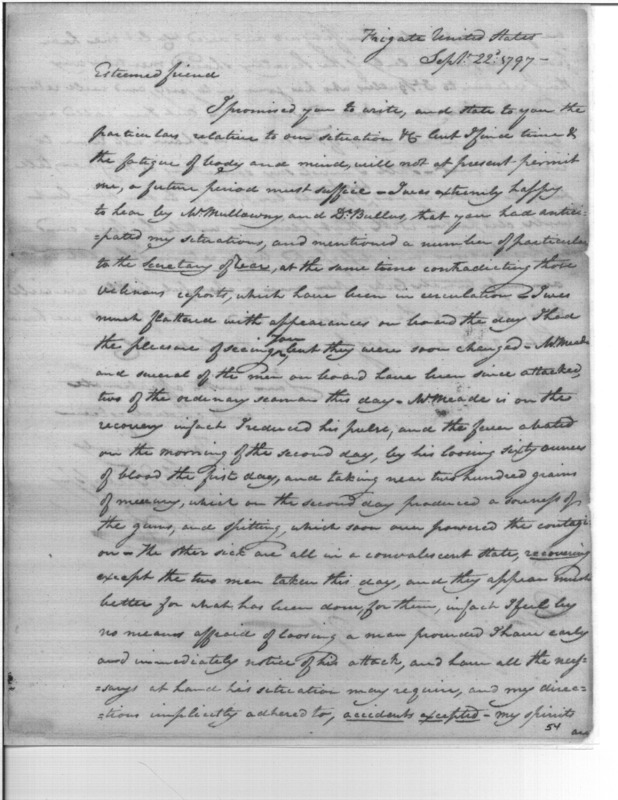 Frigate United States
Sept. 22d. 1797 -
Esteemed friend
I promised you to write, and state to you the
particulars relative to our situation &c but I find time &
the fatigue of body and mind, will not at present permit
me, a future period must suffice - I was extremly happy
to hear by Mr. Mullowny and Dr. Bullus, that you had antici=
=pated my situation, and mentioned a number of particulars
to the Secretary of War, at the same time contradicting those
vilinous reports, which have been in circulation - I was
much flattered with appearances on board the day I had
the pleasure of seeing you but they were soon changed - Mr. Meade
and several of the men on board have been since attacked,
two of the ordinary seamen this day - Mr. Meade is on the
recovery infact I reduced his pulse, and the fever abated
on the morning of the second day, by his loosing sixty ounces
of blood the first day, and taking near two hundred grains
of mercury, which on the second day produced a soreness of
the gums, and spitting, which soon over powered the contagi
on - the other sick are all in a convalescent state, recovering
except the two men taken this day, and they appear much
better for what has been done, for them, infact I feel by
no means affraid of loosing a man provided I have early
and immediately notice of his attack, and have all the neces=
=sarys at hand his situation may require, and my direc=
=tions implicitly adhered to, accidents excepted - my spirits
54 are